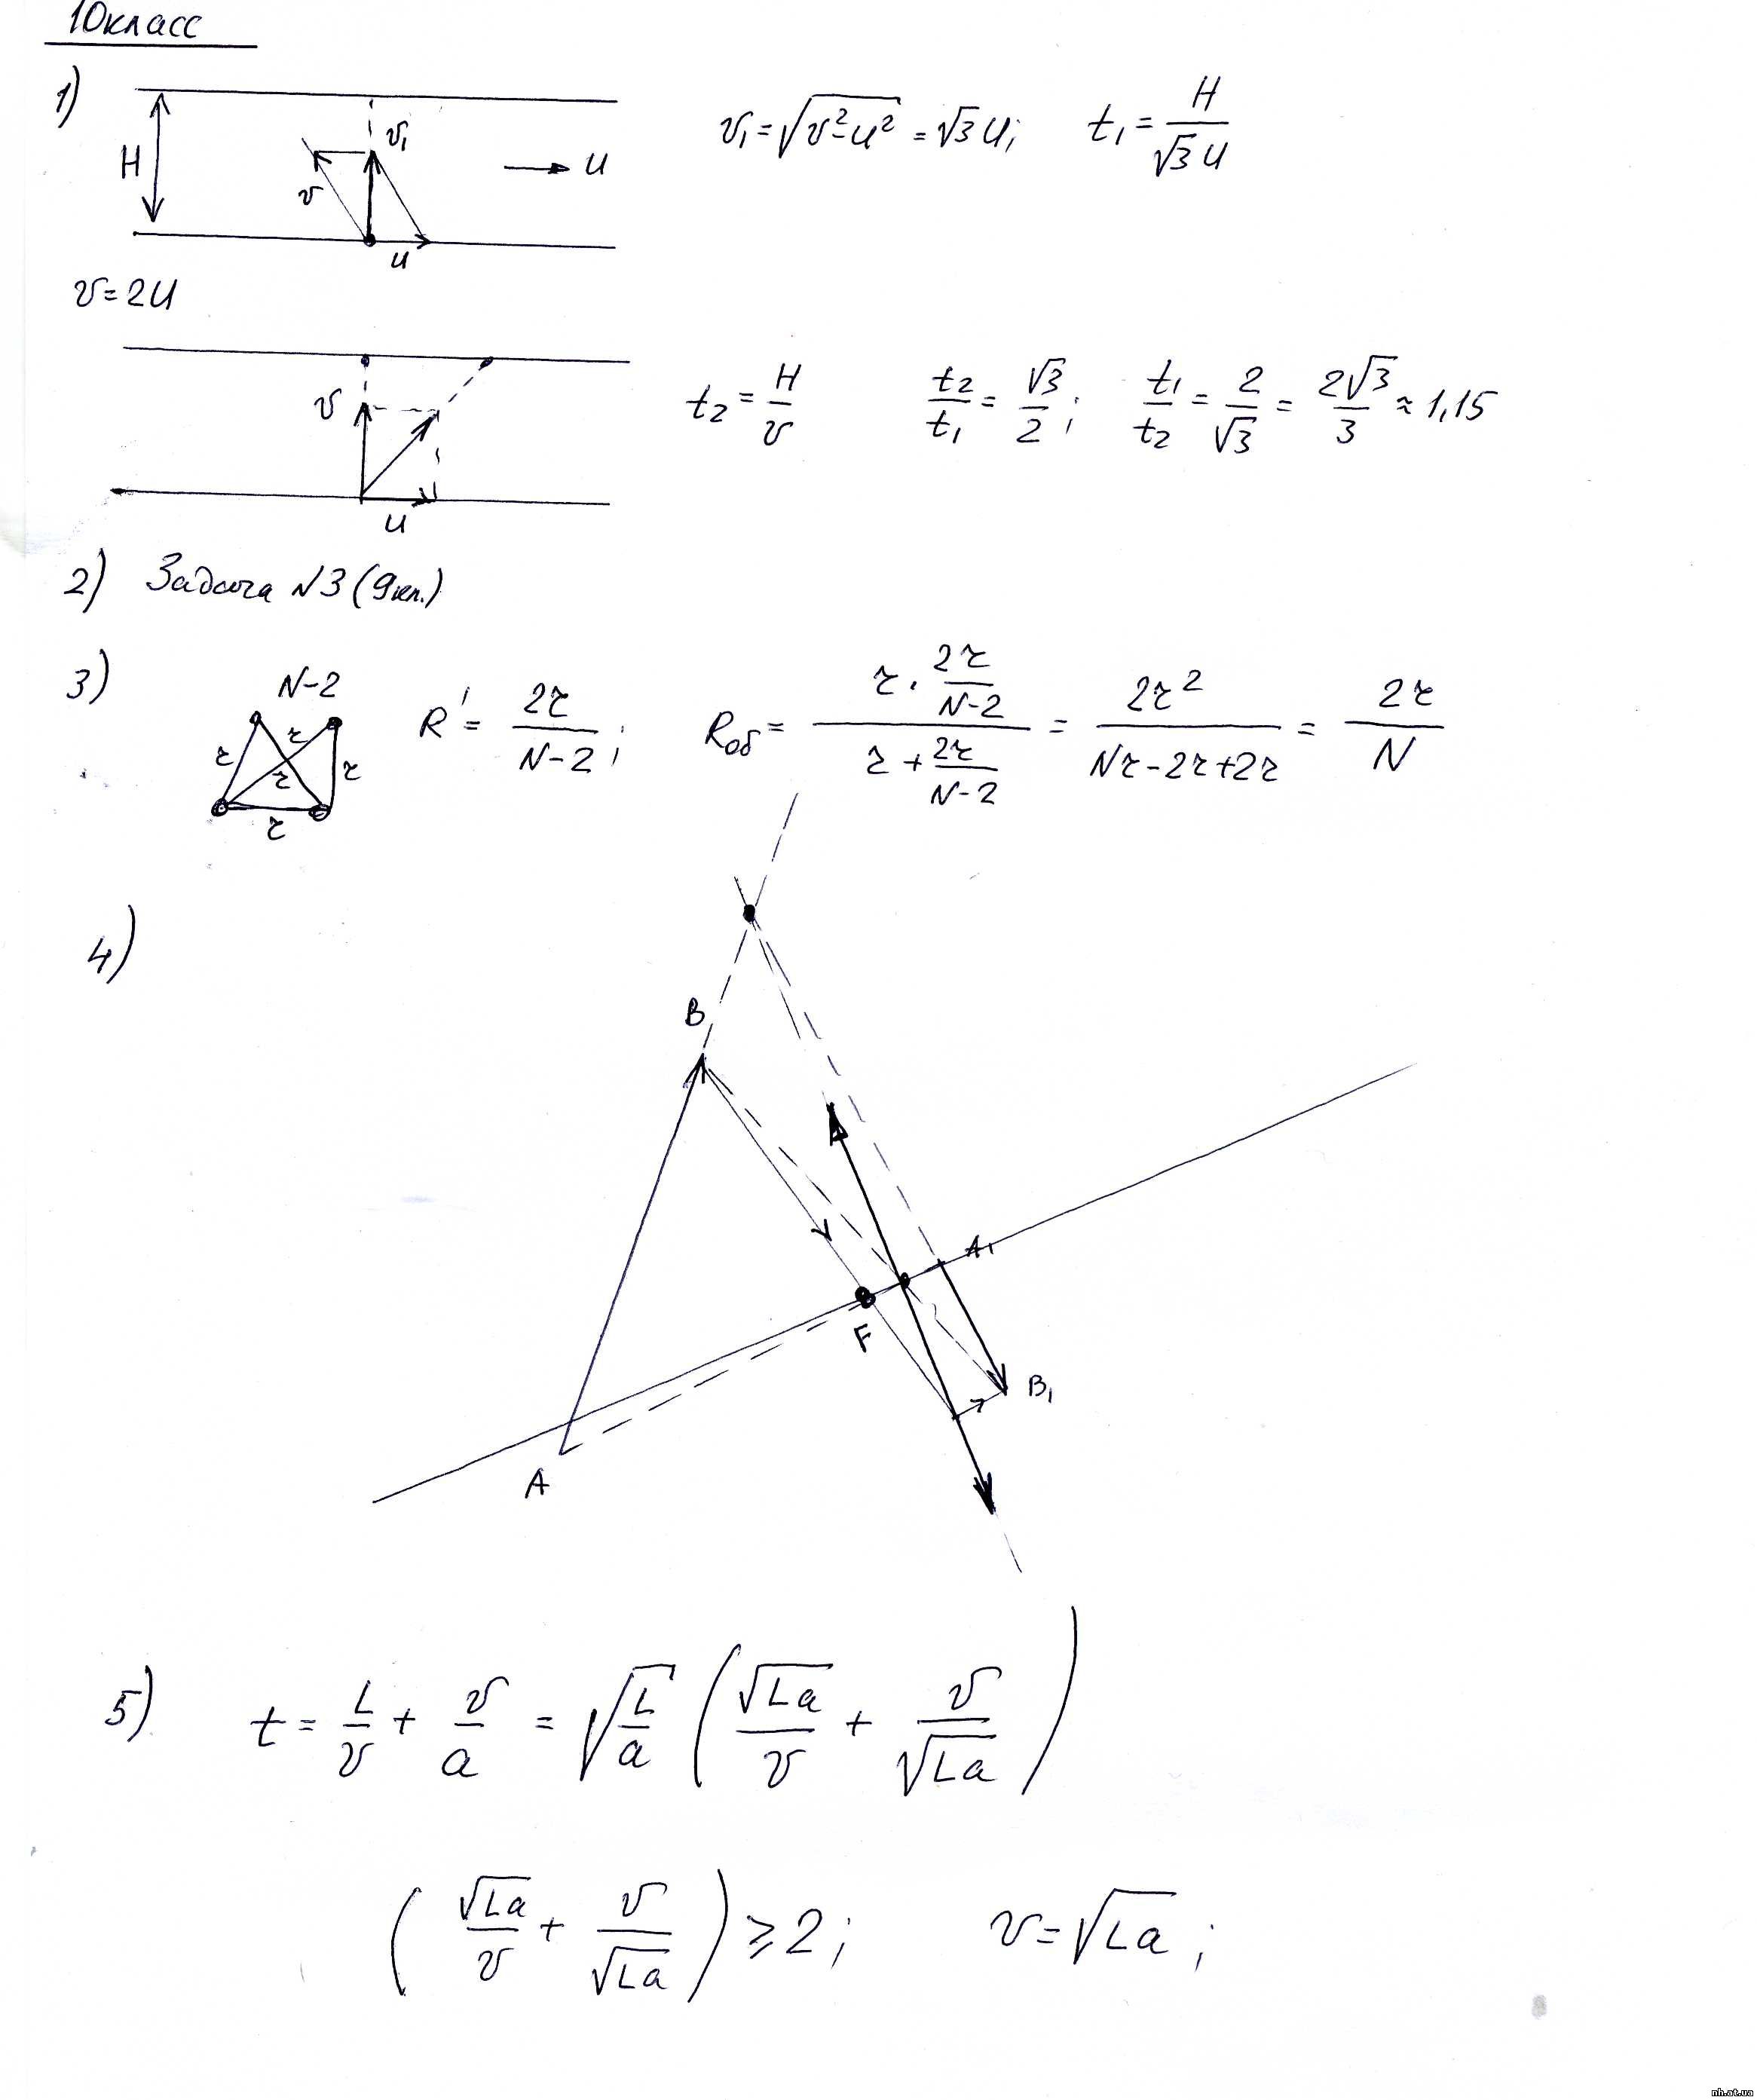 10класс
1)
H
v
v₁
u
u
v₁ = √(v² - u²) = √3 u; t₁ = H / (√3 u)
v = 2u
v
u
t₂ = H / v t₂ / t₁ = √3 / 2; t₁ / t₂ = 2 / √3 = 2√3 / 3 ≈ 1,15
2) Задача N3 (9кл.)
3) N-2
r r r r r
R' = 2r / (N-2); Rоб = (r · 2r/(N-2)) / (r + 2r/(N-2)) = 2r² / (Nr - 2r + 2r) = 2r / N
4)
B
A₁
F
B₁
A
5) t = L/v + v/a = √(L/a) (√(La)/v + v/√(La))
(√(La)/v + v/√(La)) ≥ 2; v = √(La);
nh.at.ua